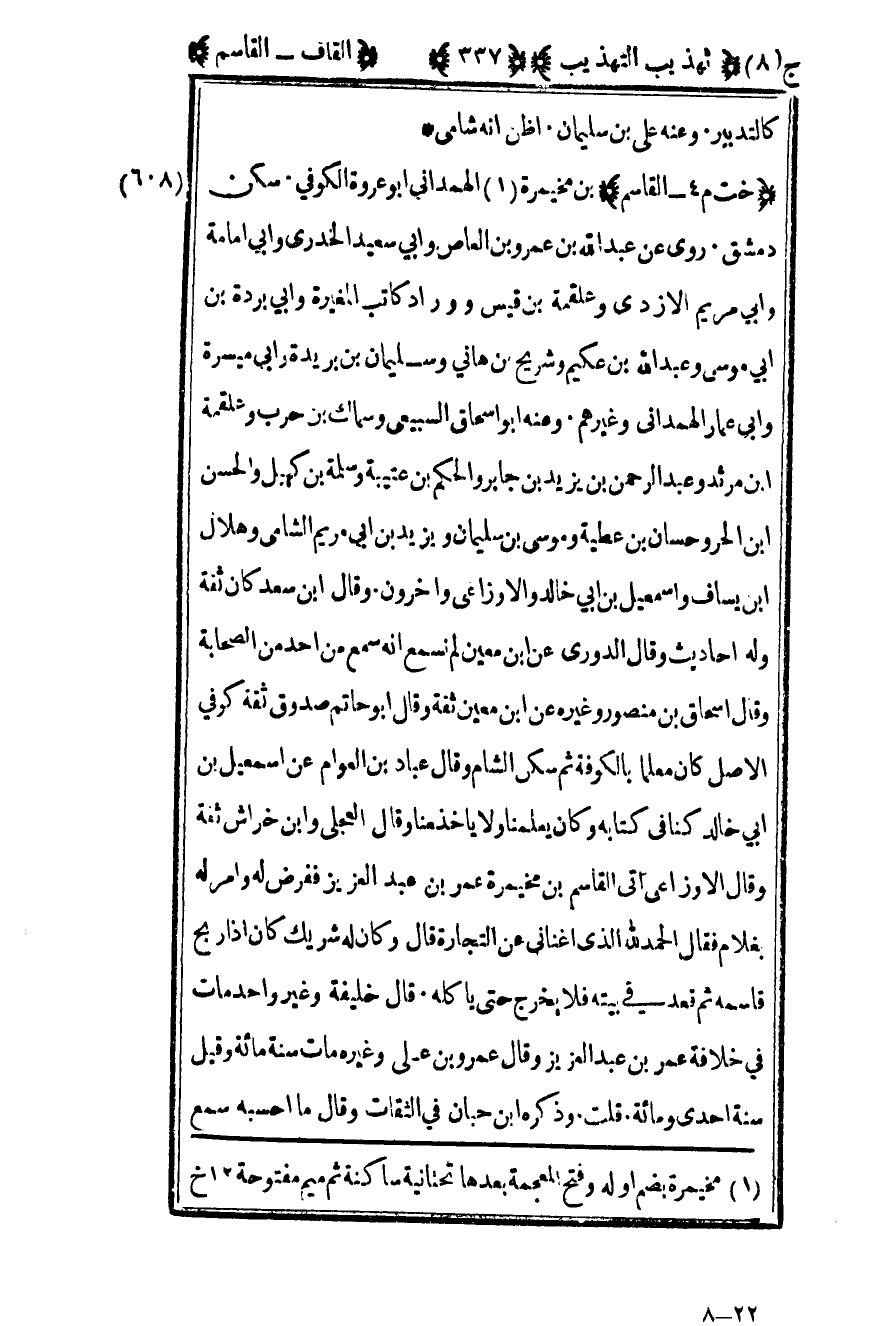 ج(٨) ﴿ تهذيب التهذيب ﴾ ﴿ ٣٣٧ ﴾ ﴿ القاف ــ القاسم ﴾
كالتدبير · وعنه على بن سليمان · اظن انه شامى *
﴿ خت م ٤ ــ القاسم ﴾ بن مخيمرة (١) الهمداني ابو عروة الكوفي · سكن (٦٠٨)
دمشق · روى عن عبدالله بن عمرو بن العاص وابي سعيد الخدرى وابي امامة
وابي مريم الازدى وعلقمة بن قيس ووراد كاتب المغيرة وابي بردة بن
ابي موسى وعبدالله بن عكيم وشريح بن هاني وسليمان بن بريدة وابي ميسرة
وابي عمار الهمدانى وغيرهم · وعنه ابو اسحاق السبيعى وسماك بن حرب وعلقمة
ابن مرثد وعبد الرحمن بن يزيد بن جابر والحكم بن عتيبة وسلمة بن كهيل والحسن
ابن الحر وحسان بن عطية وموسى بن سليمان ويزيد بن ابي مريم الشامى وهلال
ابن يساف واسمعيل بن ابي خالد والاوزاعى واخرون · وقال ابن سعد كان ثقة
وله احاديث وقال الدورى عن ابن معين لم نسمع انه سمع من احد من الصحابة
وقال اسحاق بن منصور وغيره عن ابن معين ثقة وقال ابو حاتم صدوق ثقة كوفي
الاصل كان معلما بالكوفة ثم سكن الشام وقال عباد بن العوام عن اسمعيل بن
ابي خالد كنا فى كتابه وكان يعلمنا ولا ياخذ منا وقال العجلى وابن خراش ثقة
وقال الاوزاعى آتى القاسم بن مخيمرة عمر بن عبد العزيز ففرض له وامر له
بغلام فقال الحمد لله الذى اغنانى عن التجارة قال وكان له شريك كان اذا ربح
قاسمه ثم قعد في بيته فلا يخرج حتى ياكله · قال خليفة وغير واحد مات
في خلافة عمر بن عبد العزيز وقال عمرو بن على وغيره مات سنة مائة وقيل
سنة احدى ومائة · قلت · وذكره ابن حبان في الثقات وقال ما احسبه سمع
(١) مخيمرة بضم اوله وفتح المعجمة بعدها تحتانية ساكنة ثم ميم مفتوحة ١٢ خ
٨ــ٢٢